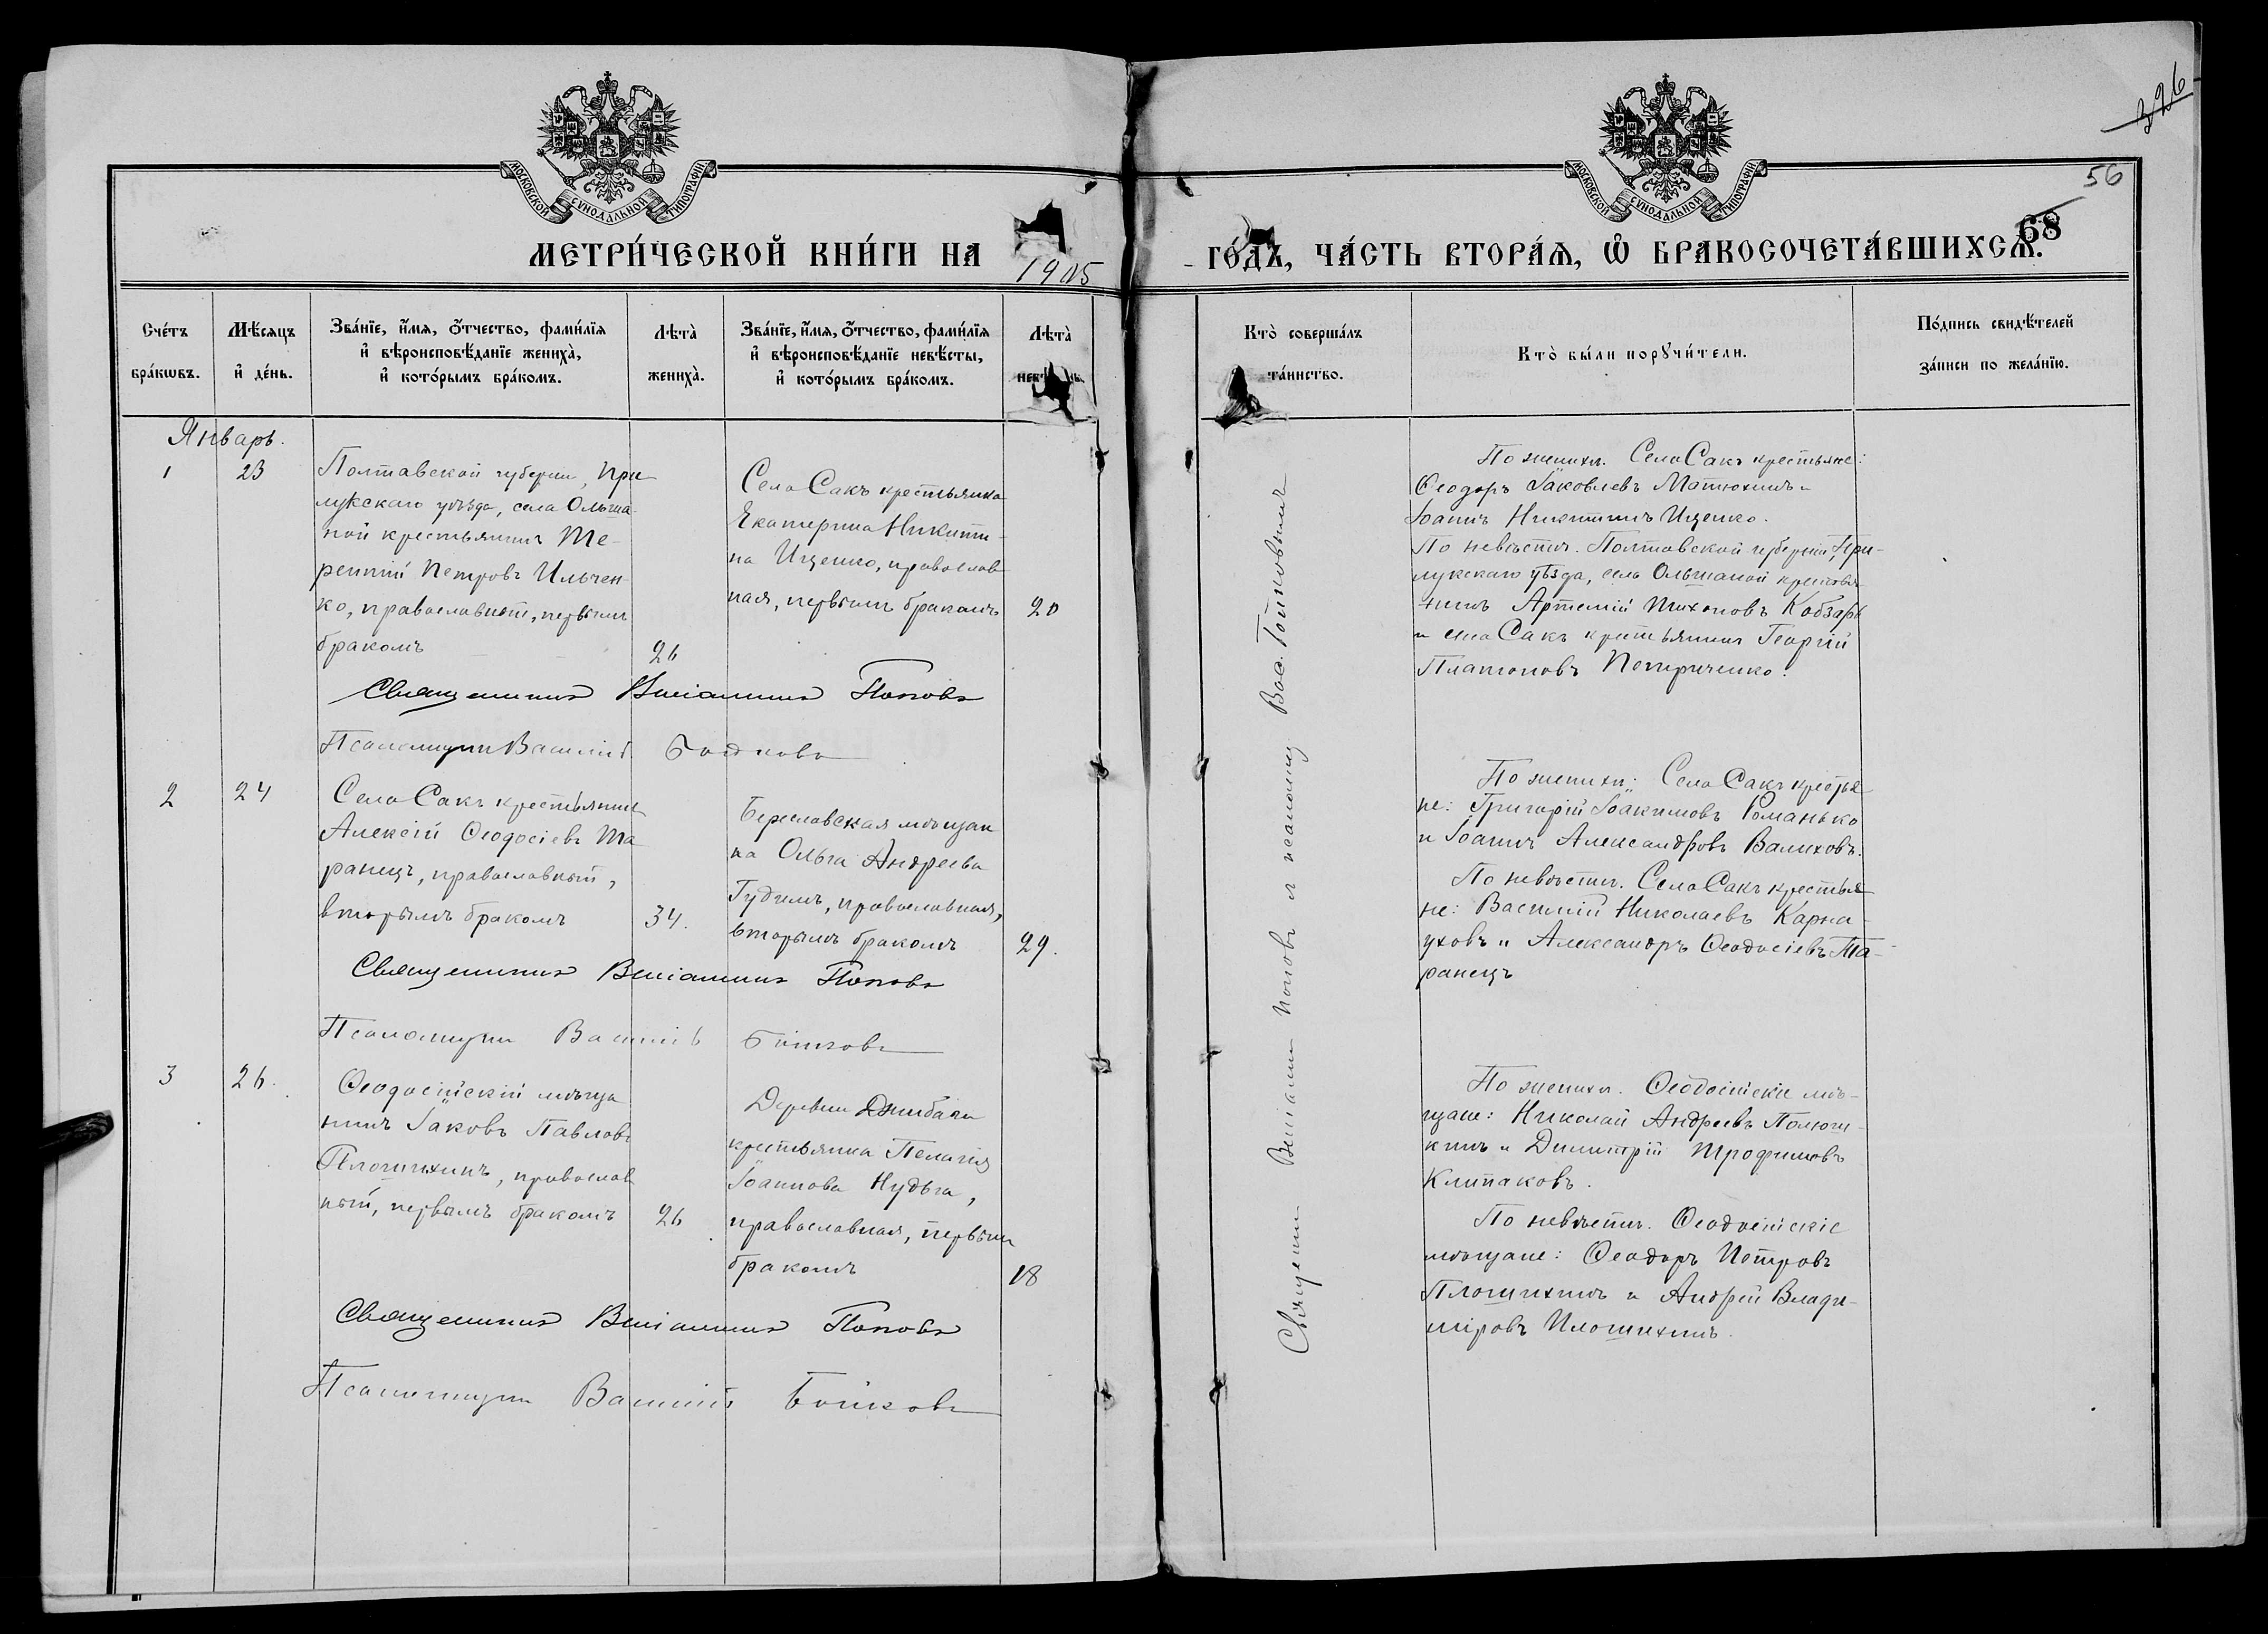 396
56
68
МОСКОВСКОЙ СѴНОДАЛЬНОЙ ТИПОГРАФІИ
МОСКОВСКОЙ СѴНОДАЛЬНОЙ ТИПОГРАФІИ
МЕТРИ́ЧЕСКОЙ КНИ́ГИ НА 1905 ГО́ДЪ, ЧА́СТЬ ВТОРА́Ѧ, Ѽ БРАКОСОЧЕТА́ВШИХСѦ.
Сче́тъ бра́кѡвъ.
Мѣ́сяцъ и҆ де́нь.
Зва́нїе, и҆́мѧ, ѻ҆́тчество, фами́лїѧ и҆ вѣроисповѣ́данїе женихà, и҆ кото́рымъ бра́комъ.
Лѣтà женихà.
Зва́нїе, и҆́мѧ, ѻ҆́тчество, фами́лїѧ и҆ вѣроисповѣ́данїе невѣ́сты, и҆ кото́рымъ бра́комъ.
Лѣтà
Кто̀ соверша́лъ та́инство.
Кто̀ бы́ли порꙋчи́тели.
По́дпись свидѣ́телей за́писи по жела́нїю.
Январь.
1
23
Полтавской губерніи, При
лукскаго уѣзда, села Ольша-
ной крестьянинъ Те-
рентій Петровъ Ильчен-
ко, православный, первымъ
бракомъ
26
Села Сакъ крестьянка
Екатерина Никити-
на Ищенко, православ
ная, первымъ бракомъ
20
Священникъ Веніаминъ Поповъ
Псаломщикъ Василій Бойковъ
По женихѣ. Села Сакъ крестьяне:
Ѳеодоръ Іаковлевъ Матюхинъ и
Іоаннъ Никитинъ Ищенко.
По невѣстѣ. Полтавской губерніи, При-
лукскаго уѣзда, села Ольшаной крестья
нинъ Артемій Тихоновъ Кобзарь
и села Сакъ крестьянинъ Георгій
Платоновъ Петриченко.
2
24
Села Сакъ крестьянинъ
Алексій Ѳеодосіевъ Та
ранецъ, православный,
вторымъ бракомъ
34.
Береславская мѣщан
ка Ольга Андреева
Гудимъ, православная,
вторымъ бракомъ
29.
Священникъ Веніаминъ Поповъ
Псаломщикъ Василій Бойковъ
По женихѣ: Села Сакъ крестья
не: Григорій Іоакимовъ Романько
и Іоаннъ Александровъ Валиховъ.
По невѣстѣ. Села Сакъ крестья
не: Василій Николаевъ Карна-
уховъ и Александръ Ѳеодосіевъ Та-
ранецъ
3
26.
Ѳеодосійскій мѣща
нинъ Іаковъ Павловъ
Плошихинъ, православ
ный, первымъ бракомъ
26
Деревни Джабачи
крестьянка Пелагія
Іоаннова Нудьга,
православная, первымъ
бракомъ
18
Священникъ Веніаминъ Поповъ
Псаломщикъ Василій Бойковъ
По женихѣ. Ѳеодосійскіе мѣ-
щане: Николай Андреевъ
и Димитрій Трофимовъ
Клипаковъ.
По невѣстѣ. Ѳеодосійскіе
мѣщане: Ѳеодоръ Петровъ
Плошихинъ и Андрей Влади-
міровъ Плошихинъ.
Священн. Веніамин Поповъ и псаломщ. Вас. Бойковымъ